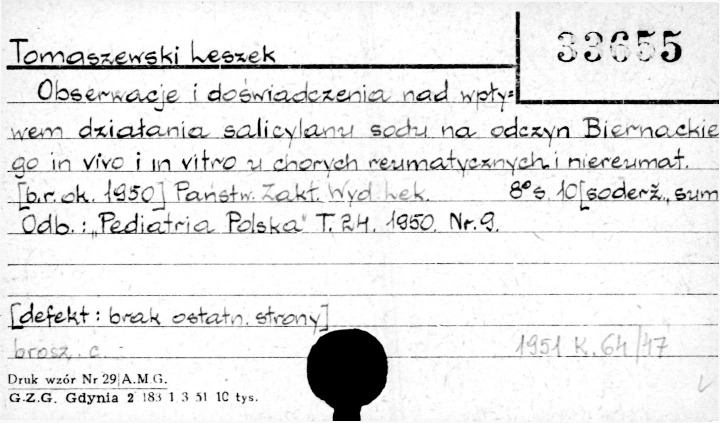 Tomaszewski Leszek
33655
Obserwacje i doświadczenia nad wpły=
wem działania salicylanu sodu na odczyn Biernackie
go in vivo i in vitro u chorych reumatycznych i niereumat.
[b.r.ok. 1950] Państw. Zakt. Wyd. Lek. 8° s. 10 [soderž., sum
Odb.: „Pediatria Polska" T. 24. 1950. Nr. 9.
[defekt: brak ostatn. strony]
brosz. c. 1951 K. 64/47
Druk wzór Nr 29 A.M.G.
G.Z.G. Gdynia 2 183 1 3 51 10 tys.